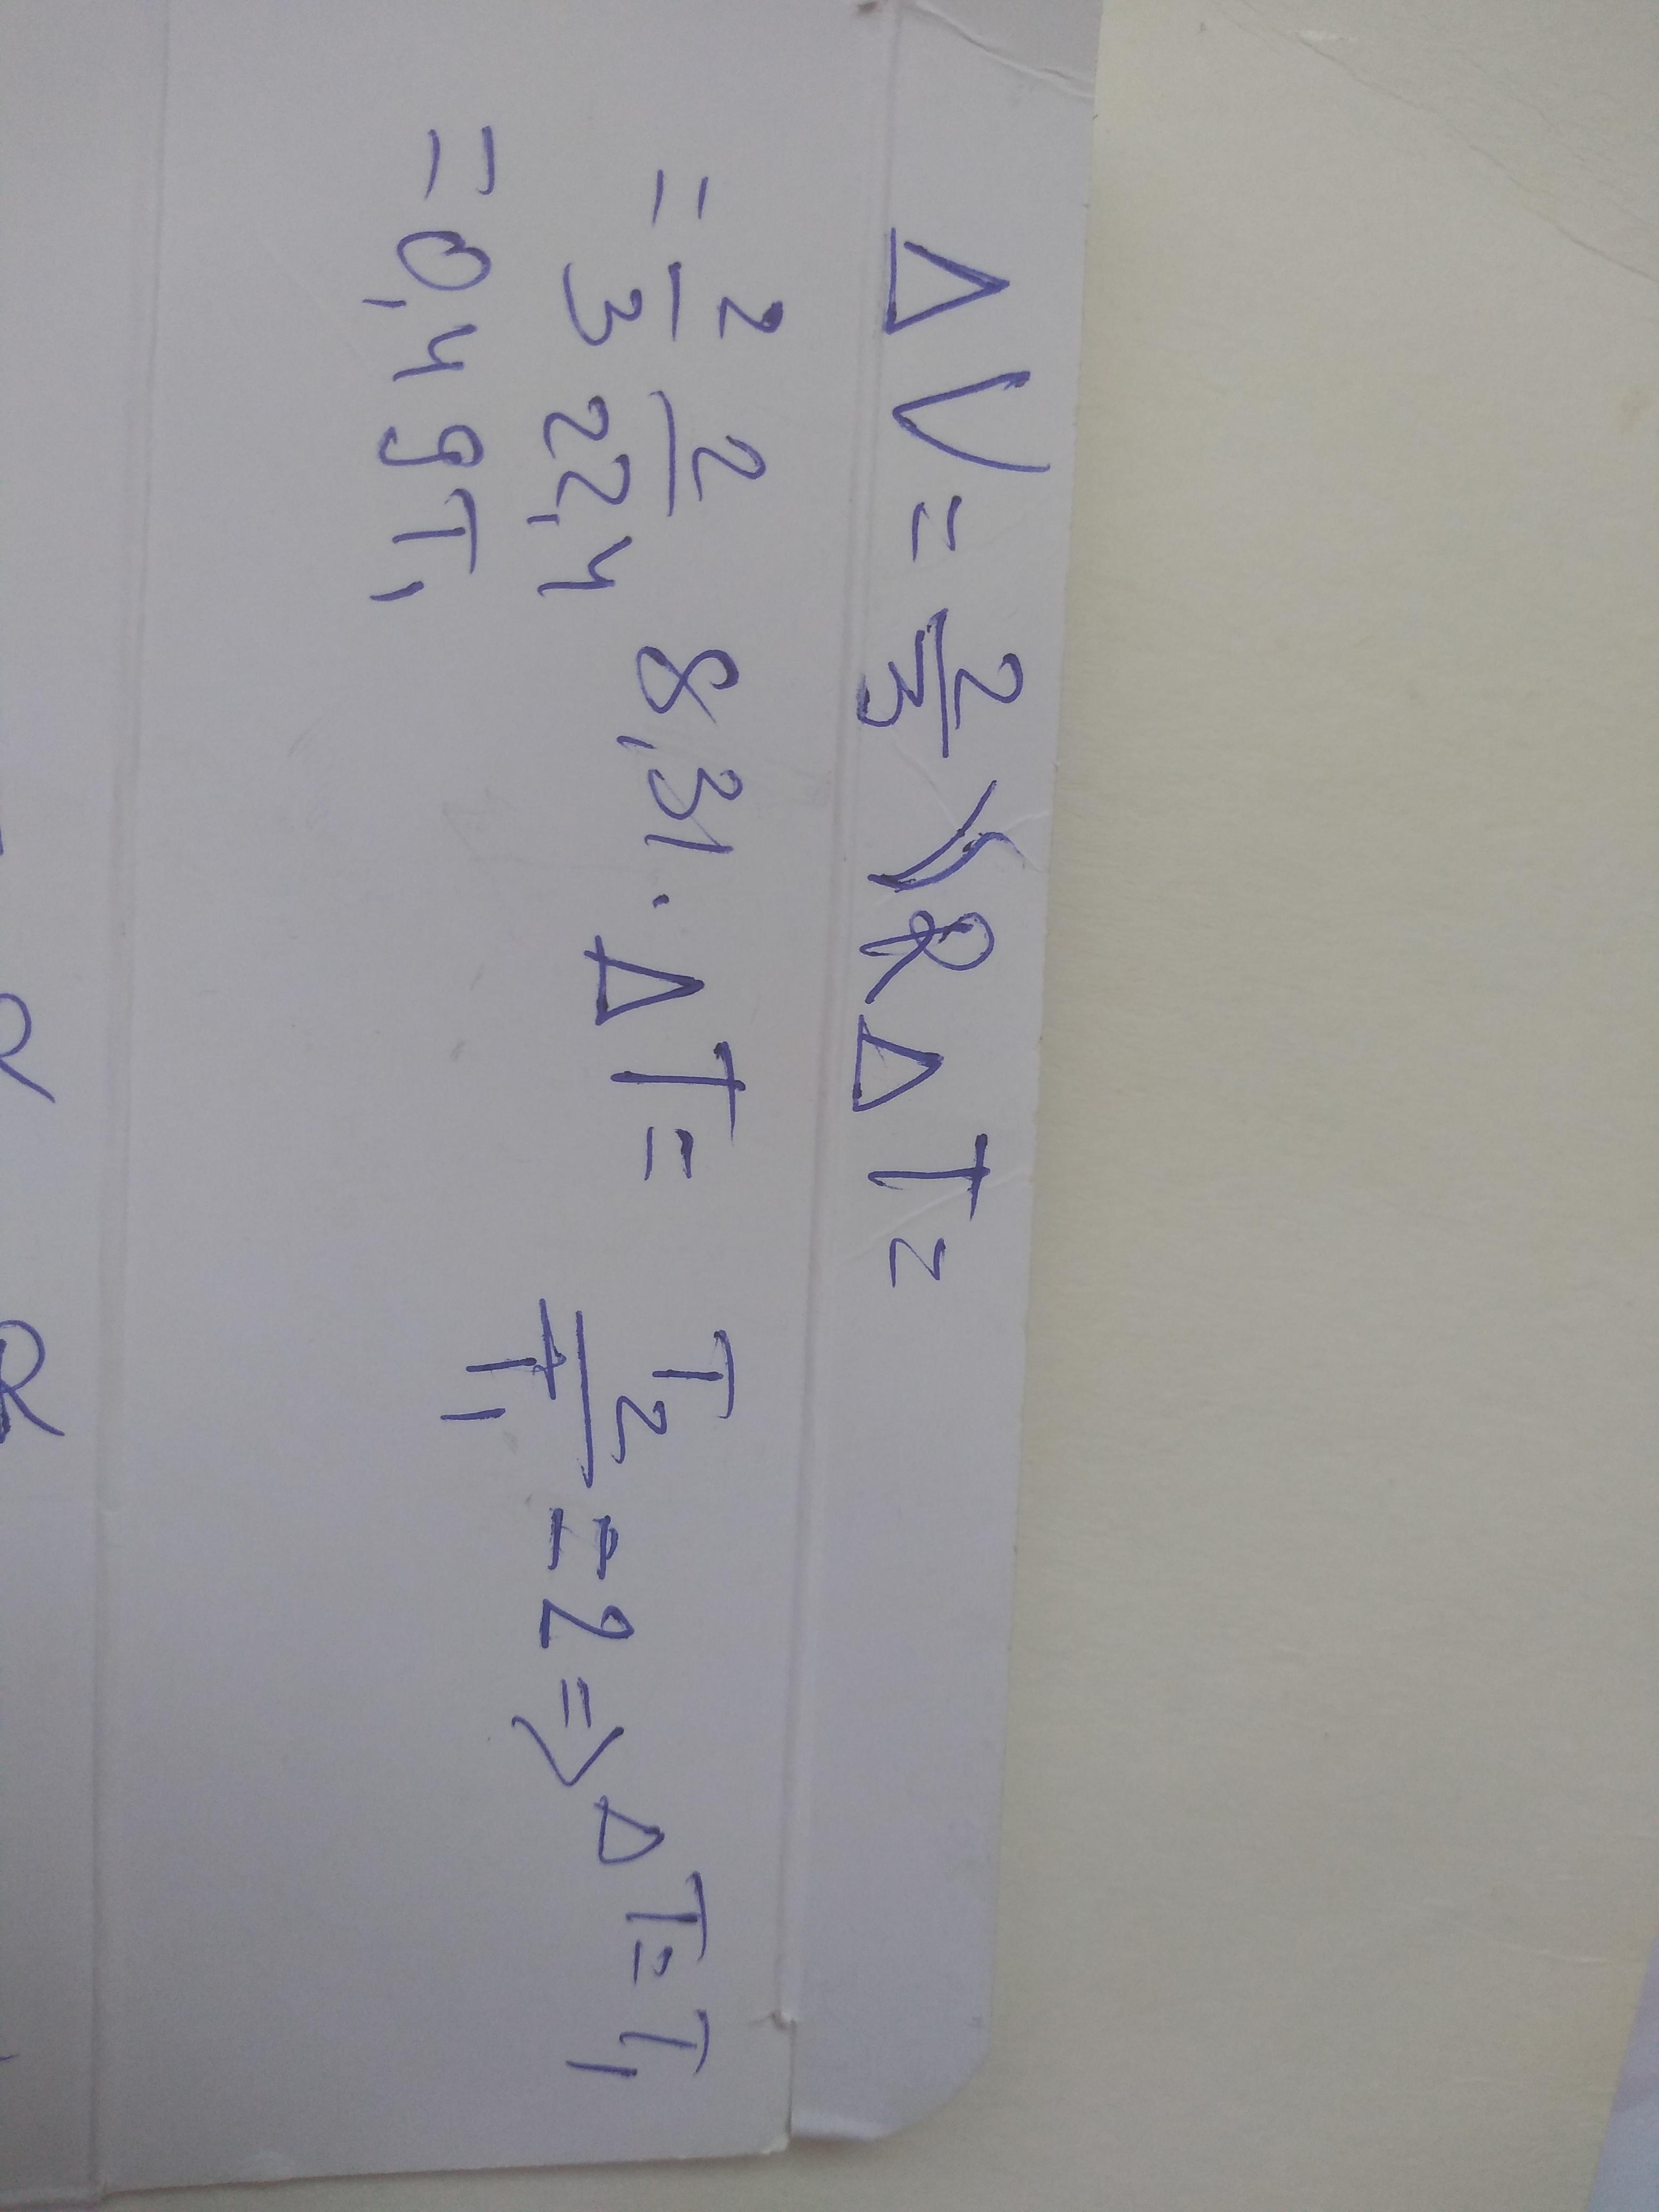 ΔV = 2/3 νRΔT =
= 2/3 2/22,4 8,31 · ΔT = T2/T1 = 2 => ΔT = T1
= 0,49T1
R